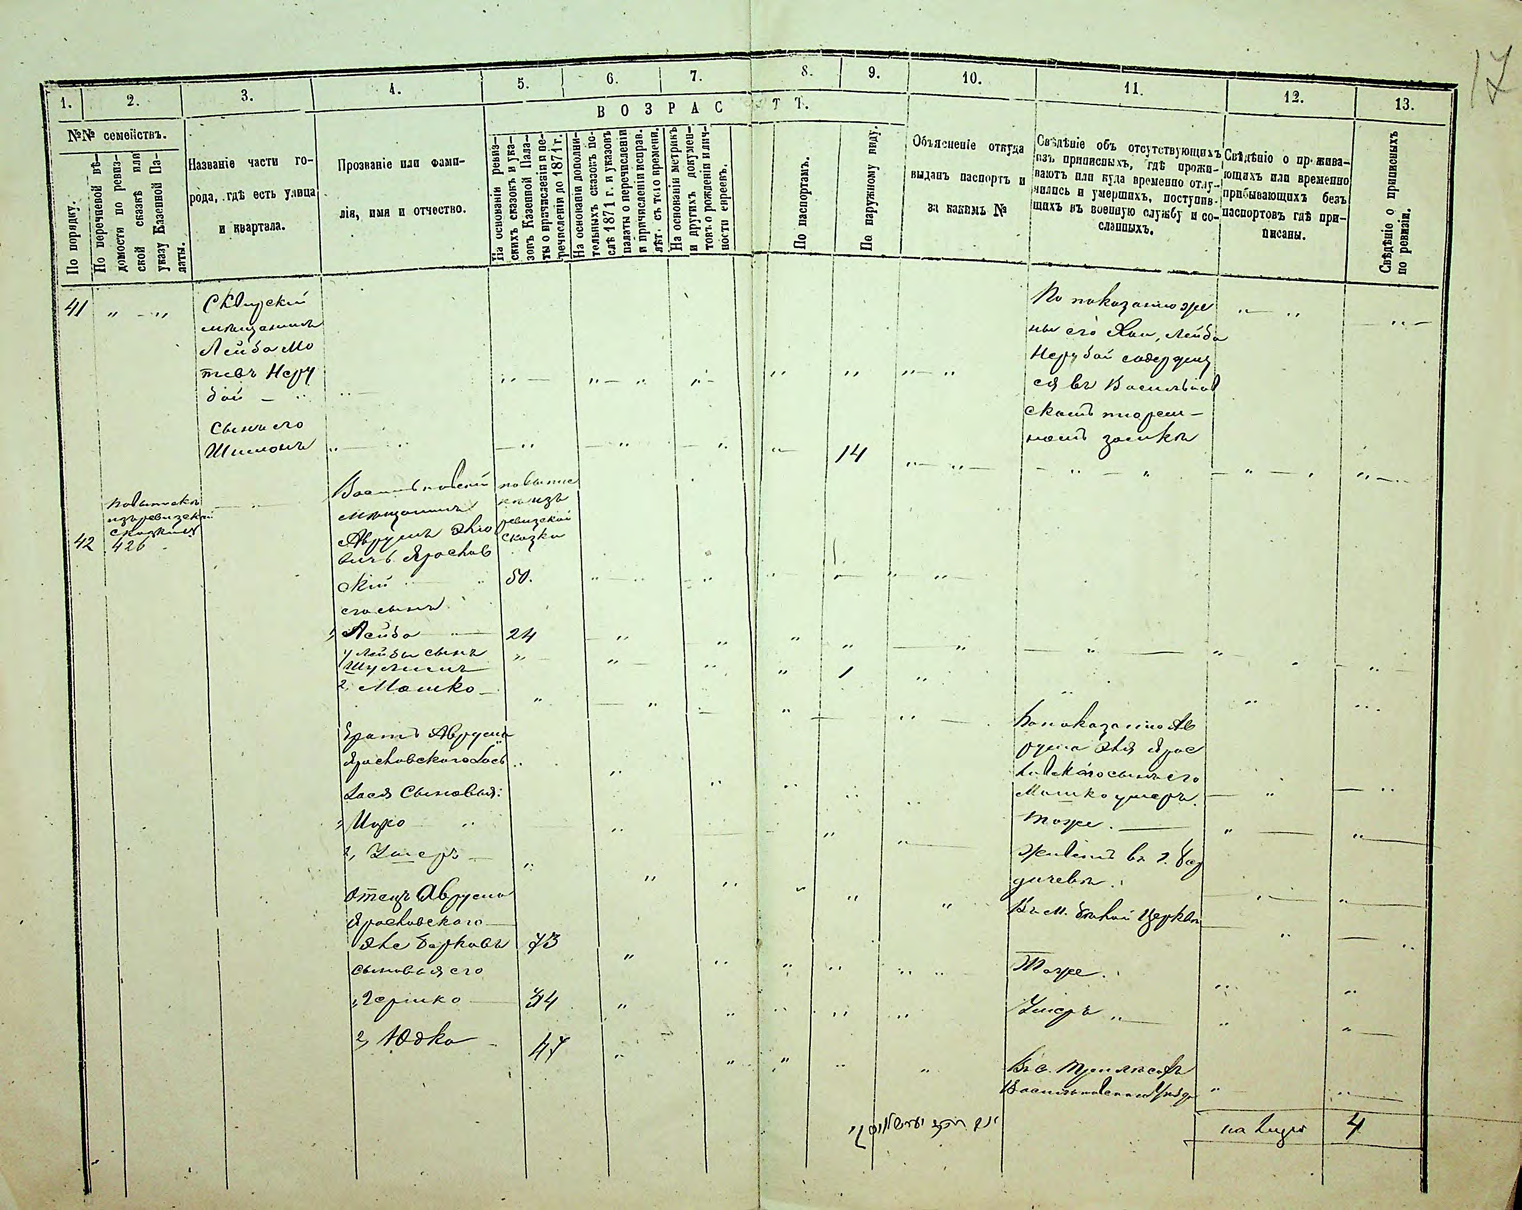 17
1. 2. 3. 4. 5. 6. 7. 8. 9. 10. 11. 12. 13.
ВОЗРАСТТ.
№№ семействъ.
По порядку.
По перечневой вѣ-
домости по ревиз-
ской сказкѣ или
указу Казенной Па-
латы.
Названіе части го-
рода, гдѣ есть улица
и квартала.
Прозваніе или фами-
лія, имя и отчество.
На основаніи ревиз-
скихъ сказокъ и ука-
зовъ Казенной Пала-
ты о причисленіи и пе-
речисленіи до 1871 г.
На основаніи дополни-
тельныхъ сказокъ по-
слѣ 1871 г. и указовъ
палаты о перечисленіи
и причисленіи исправ.
лѣт. съ того времени.
На основаніи метрикъ
и другихъ докумен-
товъ о рожденіи и лич-
ности евреевъ.
По паспортамъ.
По наружному виду.
Объясненіе откуда
выданъ паспортъ и
за какимъ №
Свѣдѣніе объ отсутствующихъ
изъ приписныхъ, гдѣ прожи-
ваютъ или куда временно отлу-
чились и умершихъ, поступив-
шихъ въ военную службу и со-
сланныхъ.
Свѣдѣніе о прожива-
ющихъ или временно
прибывающихъ безъ
паспортовъ гдѣ при-
писаны.
Свѣдѣніе о приписныхъ
по ревизіи.
41
Сквирскій
мѣщанинъ
Лейба Мо
тевъ Неру
бай
Сынъ его
Шимонъ
14
По показанію же
ны его Хаи, Лейба
Нерубай содержит
ся въ Васильков
скомъ тюрем-
номъ замкѣ
42
По выпискѣ
изъ ревизской
сказки №
426
Васильковскій
мѣщанинъ
Аврумъ Эліо
вичъ Ярослав
скій
по выпис
кѣ изъ
ревизской
сказки
50.
его сынъ
1, Лейба 24
у Лейбы сынъ
Шулимъ 1
2, Мошко
По показанію Ав
рума Эля Ярос
лавскаго сынъ его
Мошко умеръ.
Братъ Аврума
Ярославского
Сыновья:
1, Ицко
Тоже.
2, Ушеръ
Живетъ въ г. Бер
дичевѣ.
Отецъ Аврума
Ярославского
Эле Берковъ 73
Въ м. Бѣлой Церкви
сыновья его
Тоже.
1, Гершко 34
Умеръ
2, Юдко 47
Въ с.
Васильковскаго Уѣзда
на лицо 4